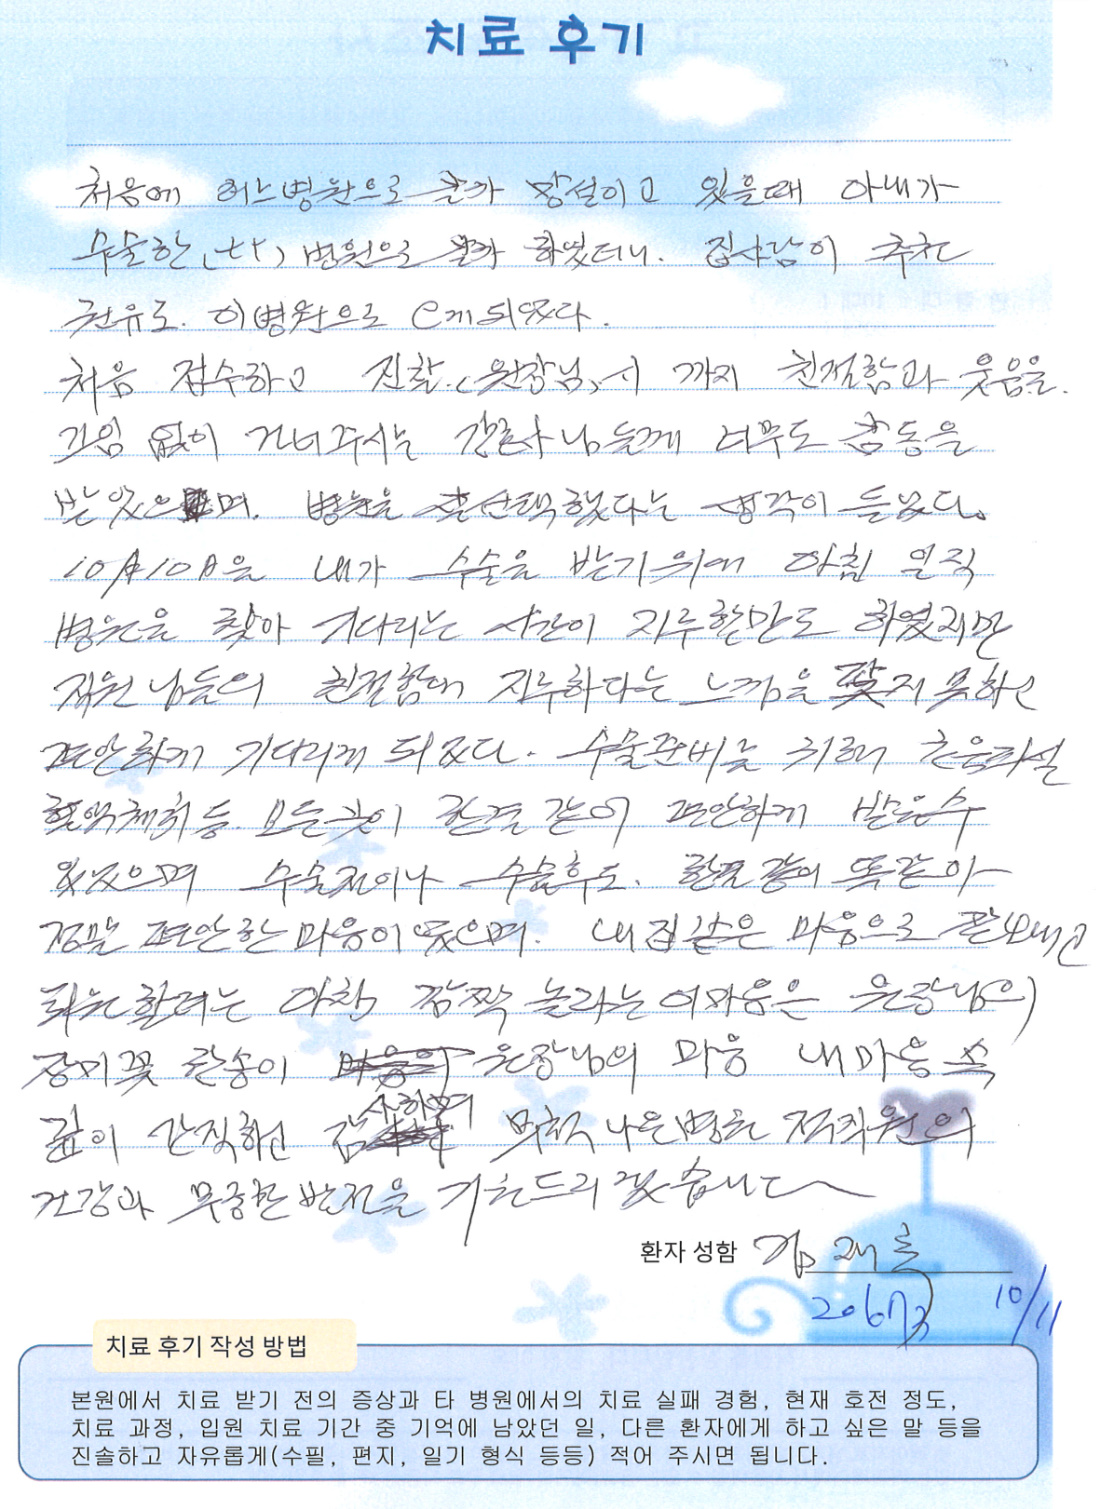 치료 후기
처음에 어느병원으로 갈까 망설이고 있을때 아내가
수술한 (타) 병원으로 갈까 하였더니. 집사람이 추천
권유로. 이병원으로 오게되었다.
처음 접수하고 진찰.(원장님)시 까지 친절함과 웃음을.
끊임 없이 건네주시는 간호사 님들께 너무도 감동을
받았으며. 병원을 잘선택했다는 생각이 들었다.
10月10日은 내가 수술을 받기위해 아침 일직
병원을 찾아 기다리는 시간이 지루할만도 하였지만
직원 님들의 친절함에 지루하다는 느낌을 찾지 못하고
편안하게 기다리게 되었다. 수술준비를 위해
혈액채취 등. 모든것이 한결 같이 편안하게 받을수
있었으며 수술전이나 수술후도. 한결 같이 똑같아
정말 편안한 마음이였으며. 내집같은 마음으로 잘보내고
퇴원할려는 아침 깜짝 놀라는 원장님의
장미꽃 한송이 원장님의 마음 내마음 속
깊이 간직하고 감사하며 나은병원 전직원의
건강과 무궁한 발전을 기원드리겠습니다
환자 성함 김재
206호 10/11
치료 후기 작성 방법
본원에서 치료 받기 전의 증상과 타 병원에서의 치료 실패 경험, 현재 호전 정도,
치료 과정, 입원 치료 기간 중 기억에 남았던 일, 다른 환자에게 하고 싶은 말 등을
진솔하고 자유롭게(수필, 편지, 일기 형식 등등) 적어 주시면 됩니다.